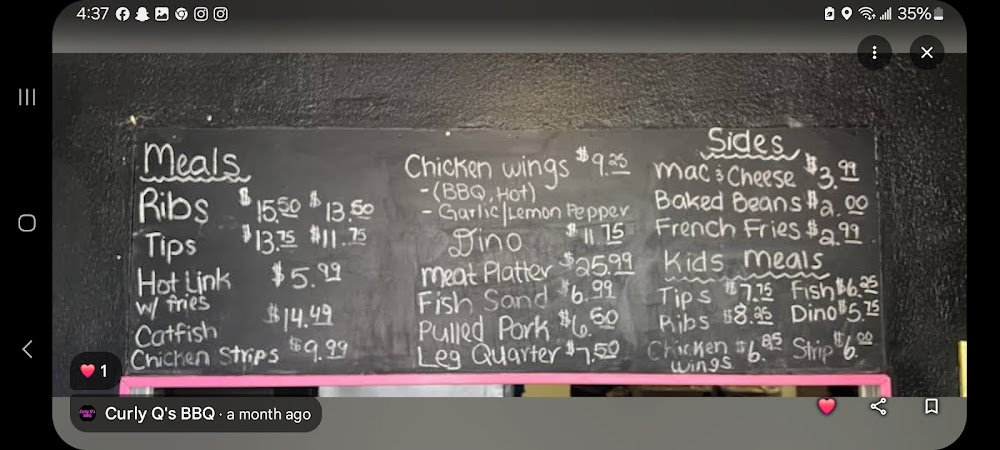 4:37
35%
Meals
Ribs $15.50 $13.50
Tips $13.75 $11.75
Hot Link $5.99
w/ fries
Catfish $14.49
Chicken Strips $9.99
Chicken wings $9.25
- (BBQ, Hot)
- Garlic|Lemon Pepper
Dino $11.75
Meat Platter $25.99
Fish Sand $6.99
Pulled Pork $6.50
Leg Quarter $7.50
Sides
Mac & Cheese $3.99
Baked Beans $2.00
French Fries $2.99
Kids meals
Tips $7.75 Fish $6.25
Ribs $8.25 Dino $5.75
Chicken $6.85 Strip $6.00
wings
1
Curly Q's BBQ · a month ago